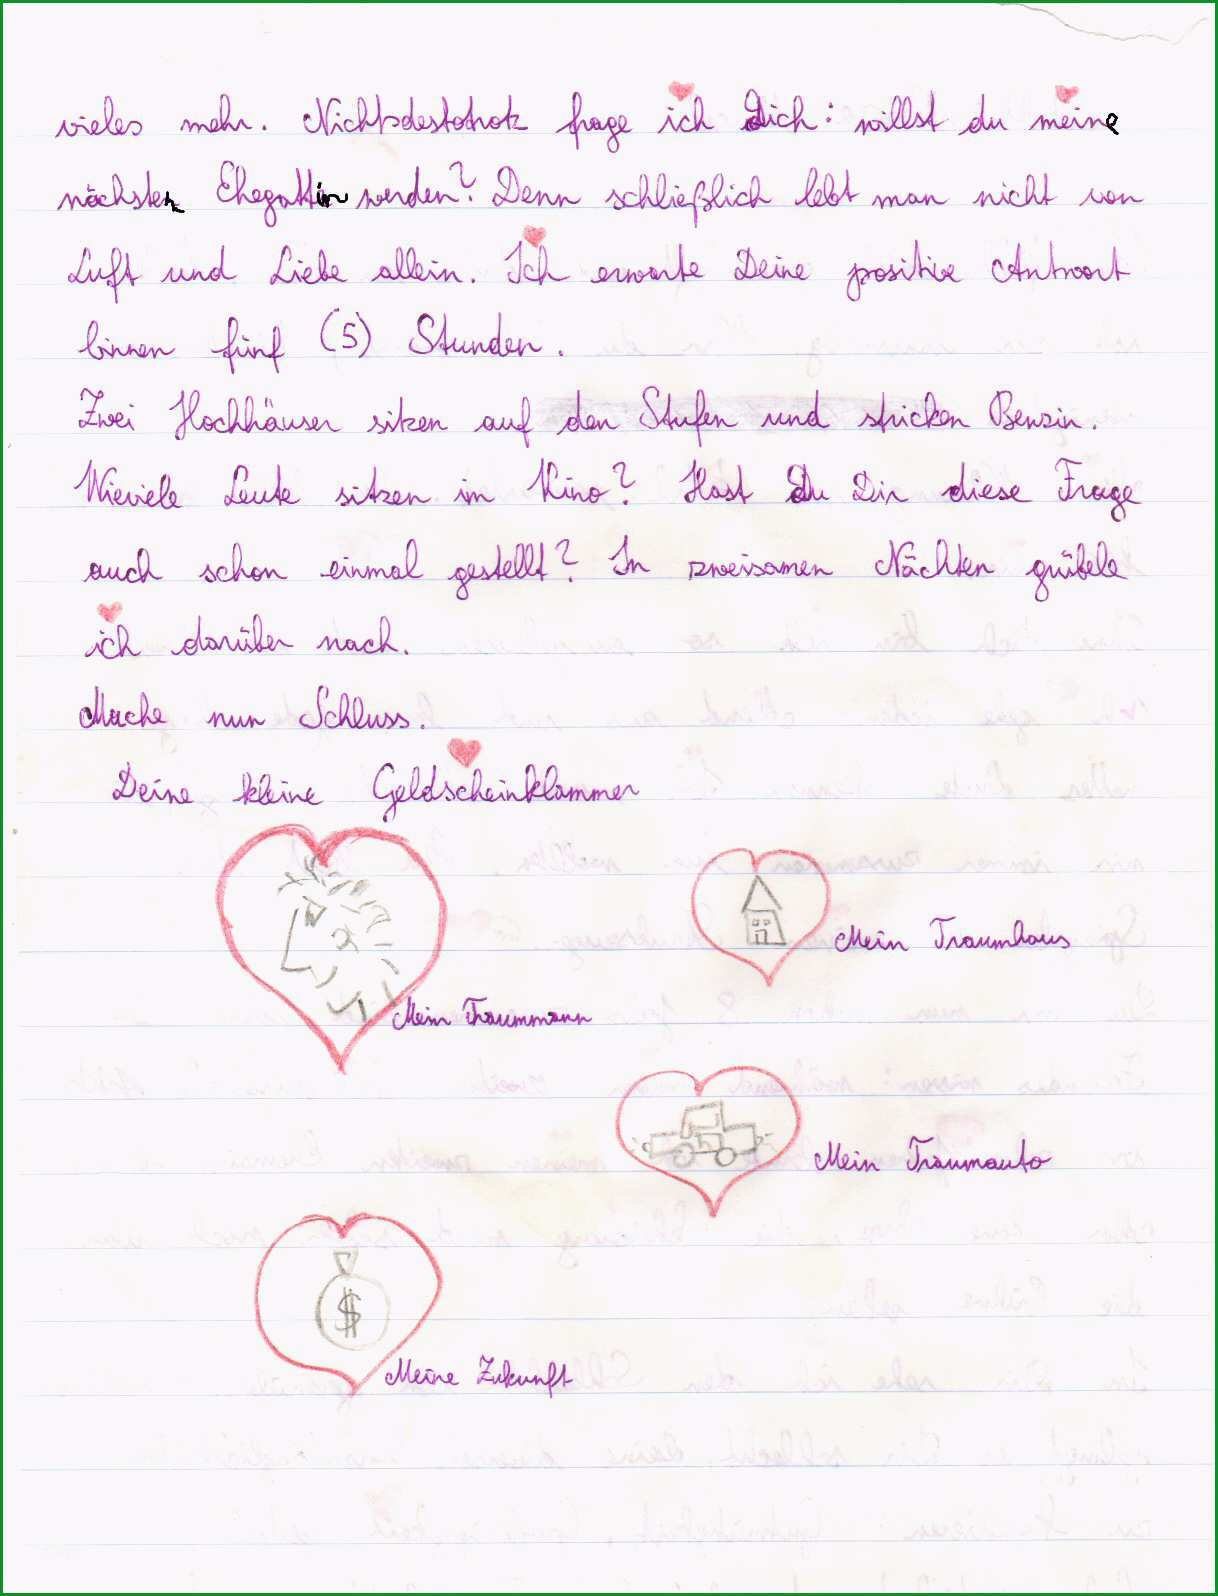 vieles mehr. Nichtsdestotrotz frage ich Dich: willst du meine
nächster Ehegattin werden? Denn schließlich lebt man nicht von
Luft und Liebe allein. Ich erwarte Deine positive Antwort
binnen fünf (5) Stunden.
Zwei Hochhäuser sitzen auf den Stufen und stricken Benzin.
Wieviele Leute sitzen im Kino? Hast Du Dir diese Frage
auch schon einmal gestellt? In zweisamen Nächten grübele
ich darüber nach.
Mache nun Schluss.
Deine kleine Geldscheinklammer
Mein Traumhaus
Mein Traummann
Mein Traumauto
$
Meine Zukunft